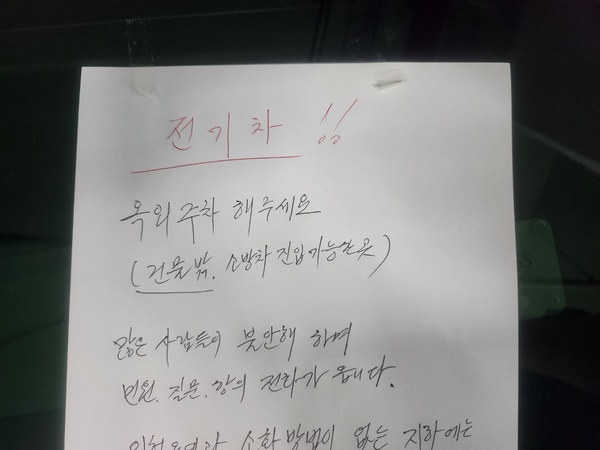 전기차 !!
옥외 주차 해주세요
(건물 밖, 소방차 진입가능한 곳)
많은 사람들이 불안해 하며
민원, 질문, 항의 전화가 옵니다.
소화 방법이 없는 지하에는